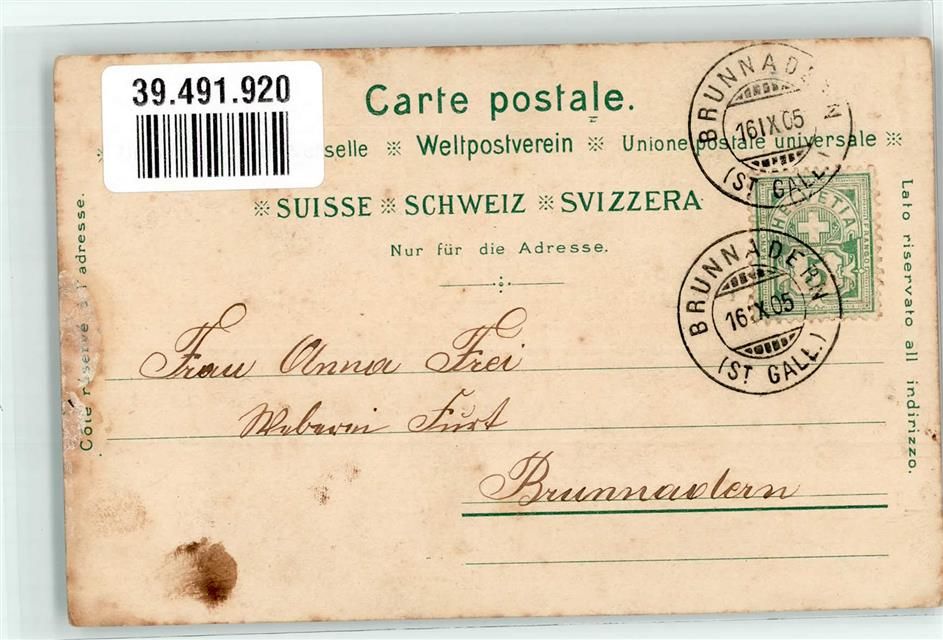 39.491.920
Carte postale.
selle ※ Weltpostverein ※ Unione postale universale ※
※ SUISSE ※ SCHWEIZ ※ SVIZZERA
Nur für die Adresse.
Côté réservé à l'adresse.
Lato riservato all indirizzo.
BRUNNADERN
16 IX 05
(ST GALL.)
HELVETIA
FRANCO
BRUNNADERN
16 IX 05
(ST GALL.)
Frau Anna Frei
Weberei Furt
Brunnadern